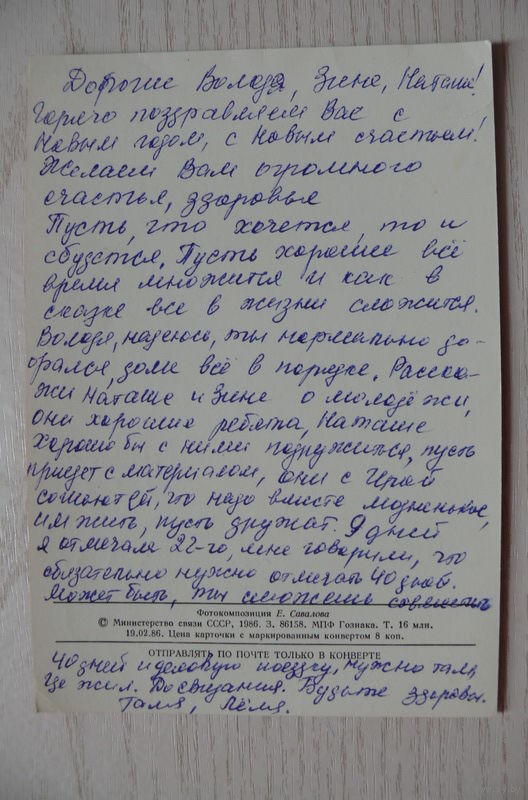 Дорогие Володя, Зина, Наташа!
Горячо поздравляем Вас с
Новым годом, с Новым счастьем!
Желаем Вам огромного
счастья, здоровья
Пусть, что хочется, то и
сбудется. Пусть хорошее всё
время множится и как в
сказке все в жизни сложится.
Володя, надеюсь, ты нормально до-
брался, дома всё в порядке. Расска-
жи Наташе и Зине о молодёжи,
они хорошие ребята, Наташе
хорошо бы с ними подружиться, пусть
приедет с материалом, они с Ирой
сошьют ей, что надо вместе модненькое,
им жить, пусть дружат. 9 дней
я отмечала 22-го, мне говорили, что
обязательно нужно отмечать 40 дней.
Может быть, ты сможешь совместить
Фотокомпозиция Е. Савалова
© Министерство связи СССР, 1986. З. 86158. МПФ Гознака. Т. 16 млн.
19.02.86. Цена карточки с маркированным конвертом 8 коп.
ОТПРАВЛЯТЬ ПО ПОЧТЕ ТОЛЬКО В КОНВЕРТЕ
40 дней и деловую поездку, нужно там,
где жил. До свидания. Будьте здоровы.
Галя, Лёля.